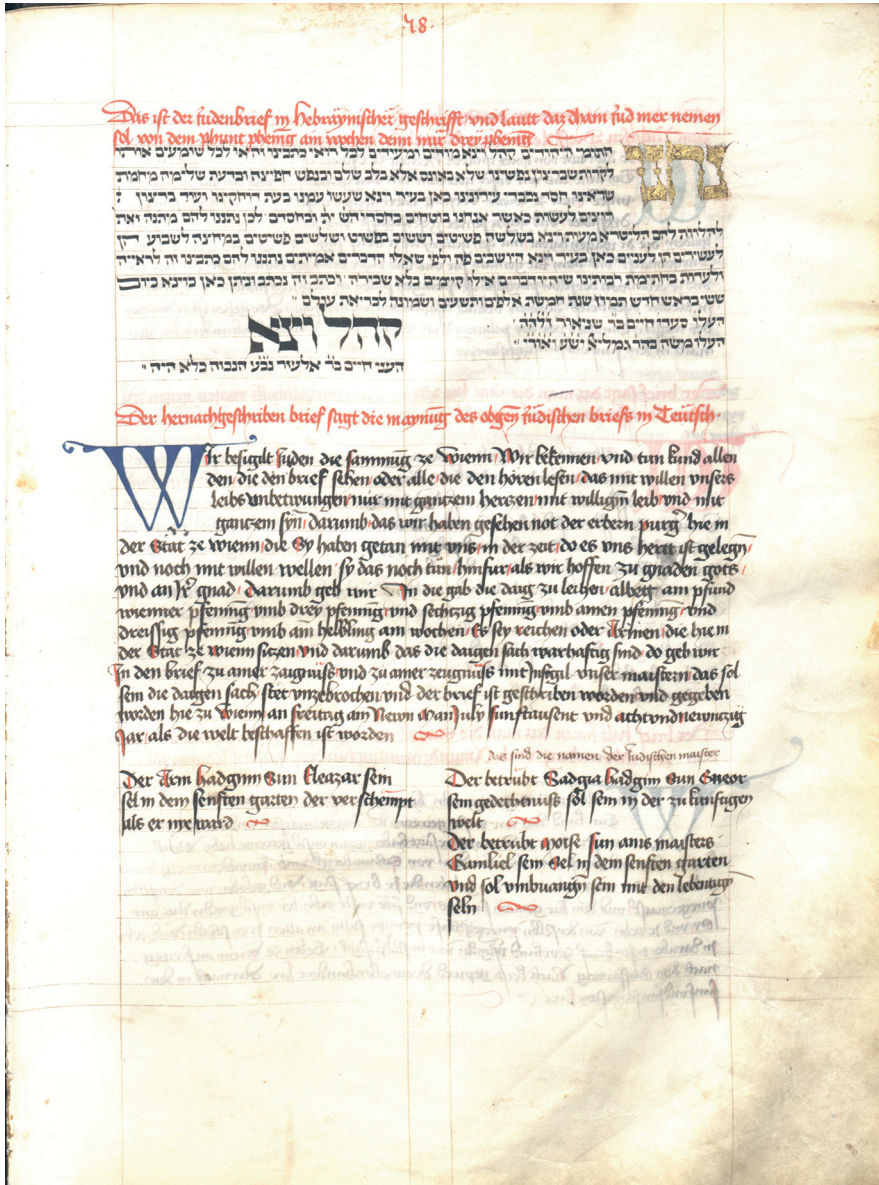 ·78·
Das ist der Judenbrief in Hebrayinischer geschrifft vnd lautt daz dhain Jud mer nemen
sol von dem phunt phening ain wochen denn nur drey phening
אנחנו
חתומי היהודים קהל וינא מודים ומעידים לכל רואי כתבינו ויהאו לכל שומעים
להיות שברצון נפשינו שלא באונס אלא בלב שלם ובנפש חפיצה ובדעת שלימה מחמת
שראינו חסד נכבדי עירונינו כאן בעיר וינא שעשו עמנו בעת דוחקינו ועוד ברצון
רוצים לעשות כאשר אנחנו בוטחים בחסדי הש׳ ית׳ ובחסדם לכן נתננו להם מתנה זאת
להלוות להם הליטרא מעות וינא בשלשה פשיטים וששים בפשוט ושלשים פשיטים במחצה לשבוע הן
לעשירים הן לעניים כאן בעיר וינא היושבים פה ולפי שאלו הדברים אמיתים נתננו להם כתבינו זה לראייה
ולעדות בחתימת רבותינו שיהיו דברים אילו קיימים בלא שבירה וכתב זה נכתב וניתן כאן בוינא ביום
ששי בראש חדש תמוז שנת חמשת אלפים ותשעים ושמונה לבריאת עולם
העלוב סעדי׳ חיים בר׳ שניאור זלה״ה
קהל וינא
העלוב משה בהר׳ גמליא׳
העני חיים בר׳ אלעזר נב״ע הנבזה כלא היה
Der hernachgeschriben brief sagt die maynung des obgen Judischen briefs in Teutsch·
Wir besigilt Juden die sammung ze Wienn Wir bekennen vnd tun kund allen
den die den brief sehen oder alle die den hören lesen das mit willen vnsers
leibs vnbetwungen nür mit gantzem hertzen mit willigm leib vnd mit
gantzem syn darumb das wir haben gesehen not der erbern purger hie in
der Stat ze wienn die Sy haben getan mit vns in der zeit do es vns hertt ist gelegn
vnd noch mit willen wellen sy das noch tun hinfur als wir hoffen zu gnaden gots
vnd an Jr gnad Darumb geb wir In die gab die daig ze leihen albeg am pfund
wienner pfening vmb drey pfenning vnd sechtzig pfening vmb ainen pfening vnd
dreissig pfenning vmb ain helbling am wochen Es sey reichen oder Armen die hie in
der Stat ze wienn sitzen Vnd darumb das die daigen sach warhaftig sind do geb wir
In den brief zu ainer zaignüss vnd zu ainer zeugnüss mit Insigil vnser maistern das sol
sein die daigen sach stet vnzebrochen vnd der brief ist geschriben worden vnd gegeben
worden hie zu Wienn an freitag am Newn Man July funftausent vnd achtvndnewnzig
Jar als die welt beschaffen ist worden
das sind die namen der Judischen maister
Der Arm hadgim Sun Eleazar sein
sel in dem senften garten der verschempt
als er nye ward
Der betrübt Sadgia hadgim Sun Sneor
sein gedechtnuss sol sein in der zu kunftigen
welt
Der betrübt Moise sun ains maisters
Gamliel sein Sel in dem senften garten
vnd sol vmbuangn sein mit den lebentign
seln